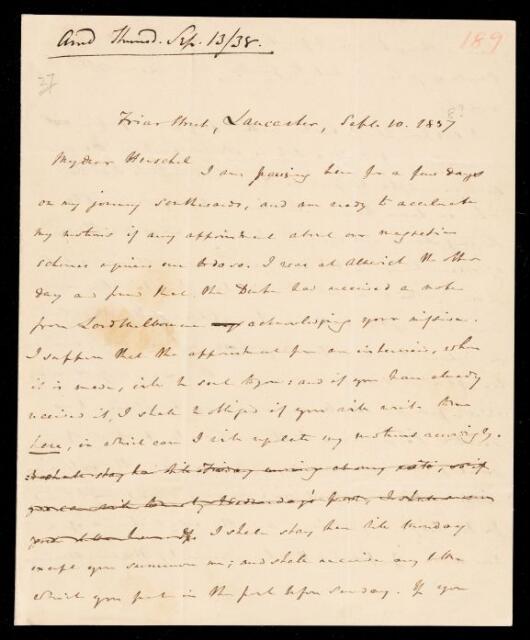 Arrd Thursd. Sep. 13/38.
189
37
Friar Street, Lancaster, Septr. 10. 1837
8?
My dear Herschel
I am pausing here for a few days
on my journey southwards, and am ready to accelerate
my motions if any appointment about our magnetic
scheme requires me to do so. I was at Alnwick the other
day and found that the Duke had received a note
from Lord Melbourne acknowledging your mission.
I suppose that the appointment for an interview, when
it is made, will be sent to you: and if you have already
received it, I shall be obliged if you will write to me
here, in which case I will regulate my motions accordingly.
I shall stay here till Friday morning at any rate, so if
you can write to me by Wednesday's post, I shall receive
your letter here. I shall stay here till Monday
except you summon me; and shall receive any letter
which you put in the post before Sunday. If you